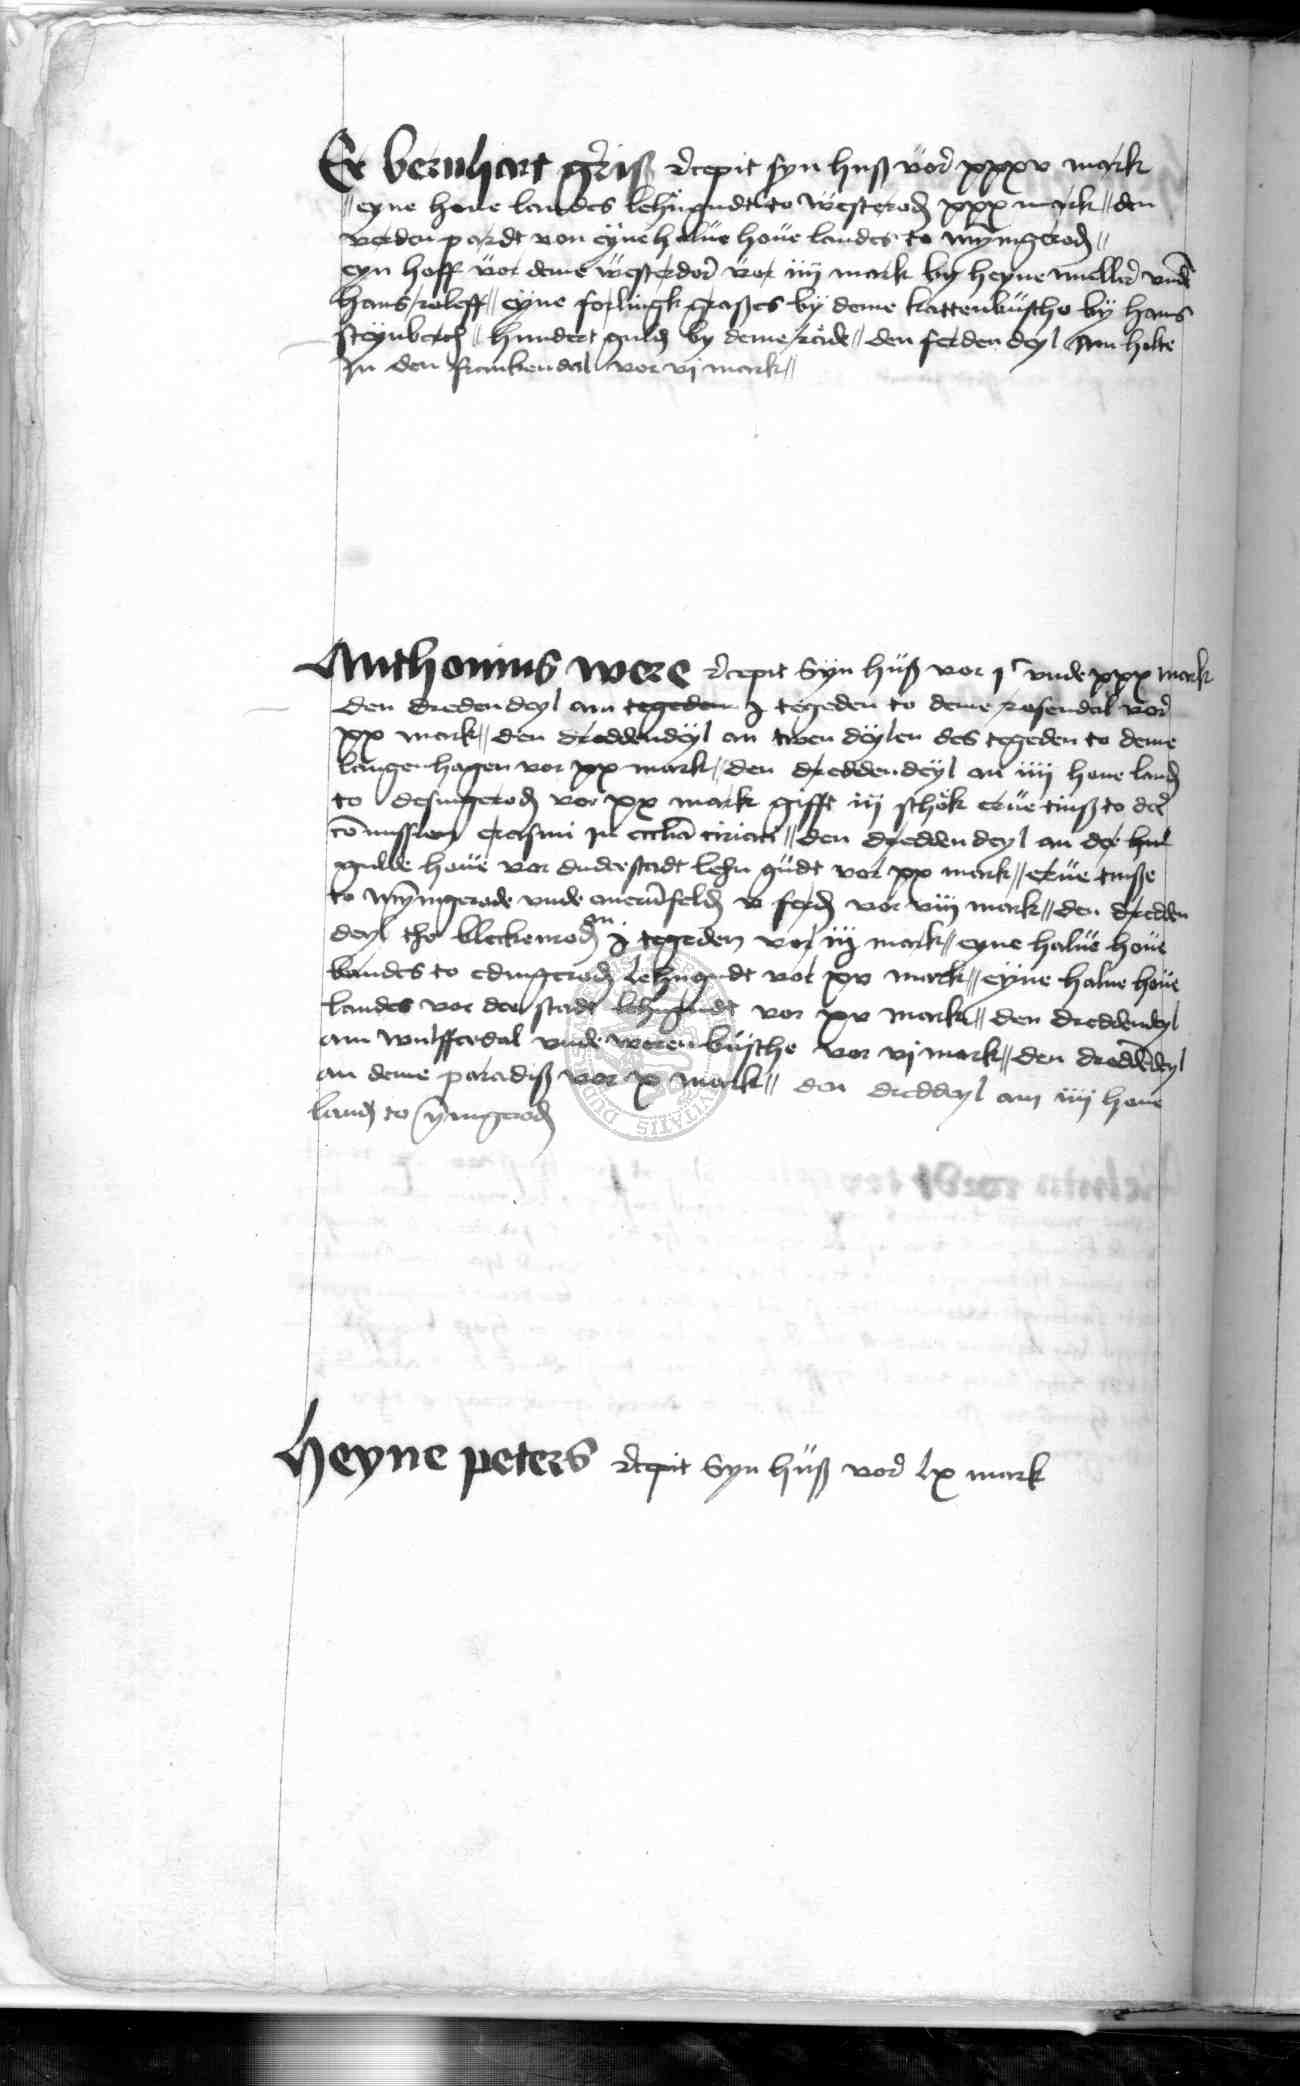 Er bernhart griß recepit syn huß vor xxxv mark
eyne houe landes lehngudt to westerod xxx mark den
verden pardt von eyne halue houe landes to myngerod
eyn hoff vor deme westerdor vor iiij mark by heyne muller vnde
hans roleff eyne forlingk graßes by deme kattenbusche by hans
steynberch hundert guld by deme rade den ferden deyl am holte
In den frankendal vor vj mark
Anthonius were recepit Syn huß vor jc vnde xxx mark
den dreden deyl am tegeden to deme rosendal vor
xx mark den dredden deyl an twen deylen des tegeden to deme
langenhagen vor xx mark den dredden deyl an iiij houe land
to desingerod vor xx mark gifft iij schok erue tinß to der
commissien erasmi in ecclia ciriaci den dredden deyl an der hul
gulde houe vor duderstadt lehn gudt vor xx mark erue tinße
to myngerode vnde v ferd vor viij mark den dredden
deyl tho bleckenrod an tegeden vor iij mark eyne halue houe
landes to edingerod lehngudt vor xv mark eyne halue houe
landes vor der stadt lehngudt vor xv mark den dreddendeyl
am wulfferdal vnde werenbusche vor vj mark den dreddendeyl
an deme paradiß vor x mark den dreddeyl am iiij houe
land to yngerod
heyne peters recepit Syn huß vor lx mark